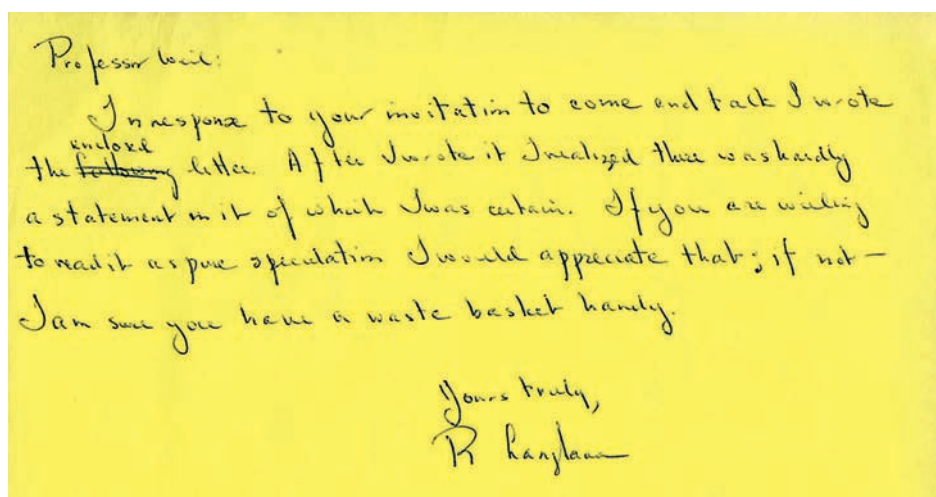 Professor Weil:
In response to your invitation to come and talk I wrote
enclosed
the following letter. After I wrote it I realized there was hardly
a statement in it of which I was certain. If you are willing
to read it as pure speculation I would appreciate that; if not –
I am sure you have a waste basket handy.
Yours truly,
R Langlands